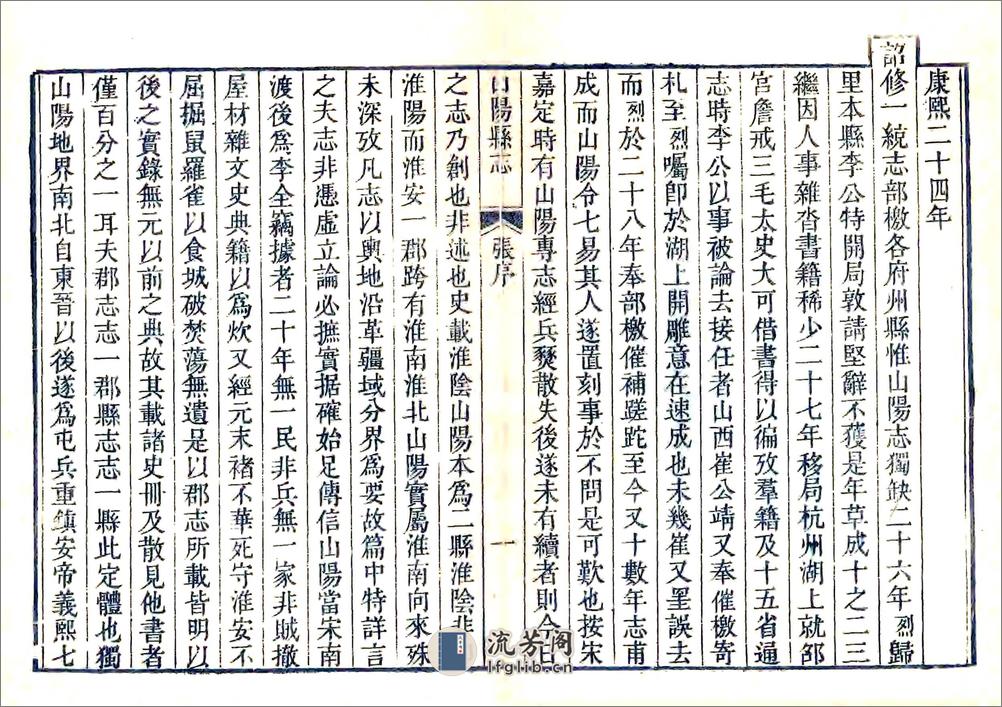 康熙二十四年
詔修一統志部檄各府州縣惟山陽志獨缺二十六年烈歸
里本縣李公特開局敦請堅辭不獲是年草成十之二三
繼因人事雜沓書籍稀少二十七年移局杭州湖上就邵
宮詹戒三毛太史大可借書得以徧攷羣籍及十五省通
志時李公以事被論去接任者山西崔公靖又奉催檄寄
札至烈囑卽於湖上開雕意在速成也未幾崔又罣誤去
而烈於二十八年奉部檄催補蹉跎至今又十數年志甫
成而山陽令七易其人遂置刻事於不問是可歎也按宋
嘉定時有山陽專志經兵燹散失後遂未有續者則今日
山陽縣志 張序 一
之志乃創也非述也史載淮陰山陽本爲二縣淮陰非
淮陽而淮安一郡跨有淮南淮北山陽實屬淮南向來殊
未深攷凡志以輿地沿革疆域分界爲要故篇中特詳言
之夫志非憑虛立論必摭實据確始足傳信山陽當宋南
渡後爲李全竊據者二十年無一民非兵無一家非賊撤
屋材雜文史典籍以爲炊又經元末褚不華死守淮安不
屈掘鼠羅雀以食城破焚蕩無遺是以郡志所載皆明以
後之實錄無元以前之典故其載諸史冊及散見他書者
僅百分之一耳夫郡志志一郡縣志志一縣此定體也獨
山陽地界南北自東晉以後遂爲屯兵重鎮安帝義熙七
流芳阁
lfglib.com